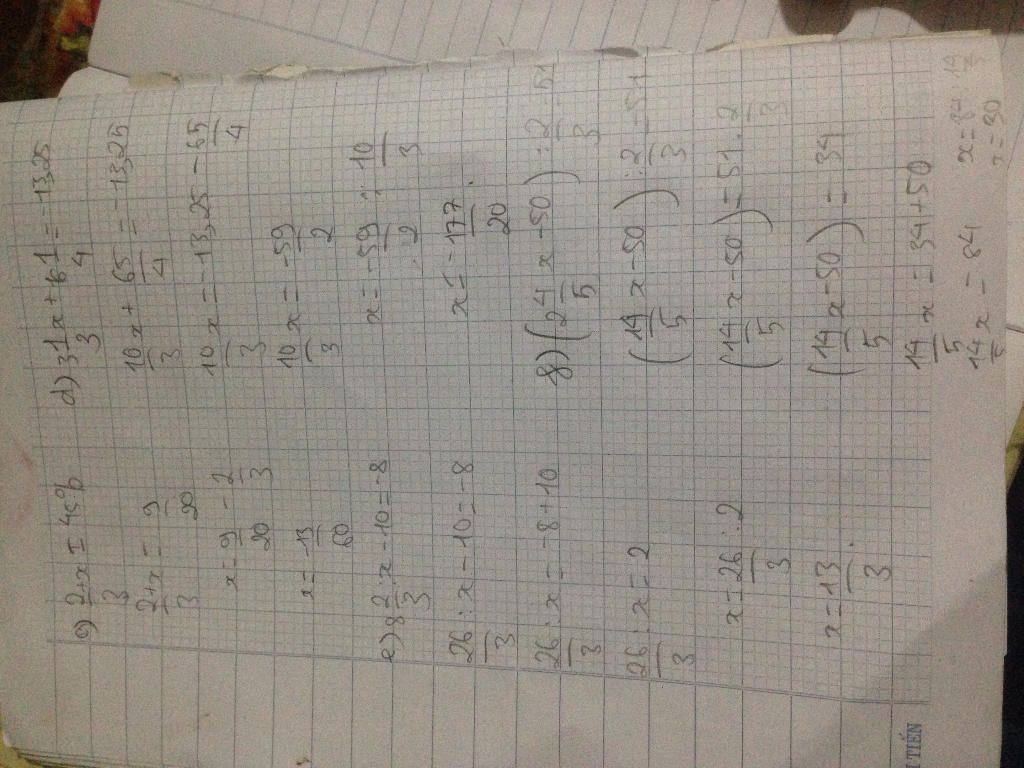 c) 2/3 + x = 45%
2/3 + x = 9/20
x = 9/20 - 2/3
x = -13/60
e) 8 2/3 : x - 10 = -8
26/3 : x - 10 = -8
26/3 : x = -8 + 10
26/3 : x = 2
x = 26/3 : 2
x = 13/3.
d) 3 1/3 x + 6 1/4 = -13,25
10/3 x + 65/4 = -13,25
10/3 x = -13,25 - 65/4
10/3 x = -59/2
x = -59/2 : 10/3
x = -177/20.
8) (2 4/5 x - 50) : 2/3 = 51
(14/5 x - 50) : 2/3 = 51
(14/5 x - 50) = 51 . 2/3
(14/5 x - 50) = 34
14/5 x = 34 + 50
14/5 x = 84
x = 84 : 14/5
x = 30
TIẾN